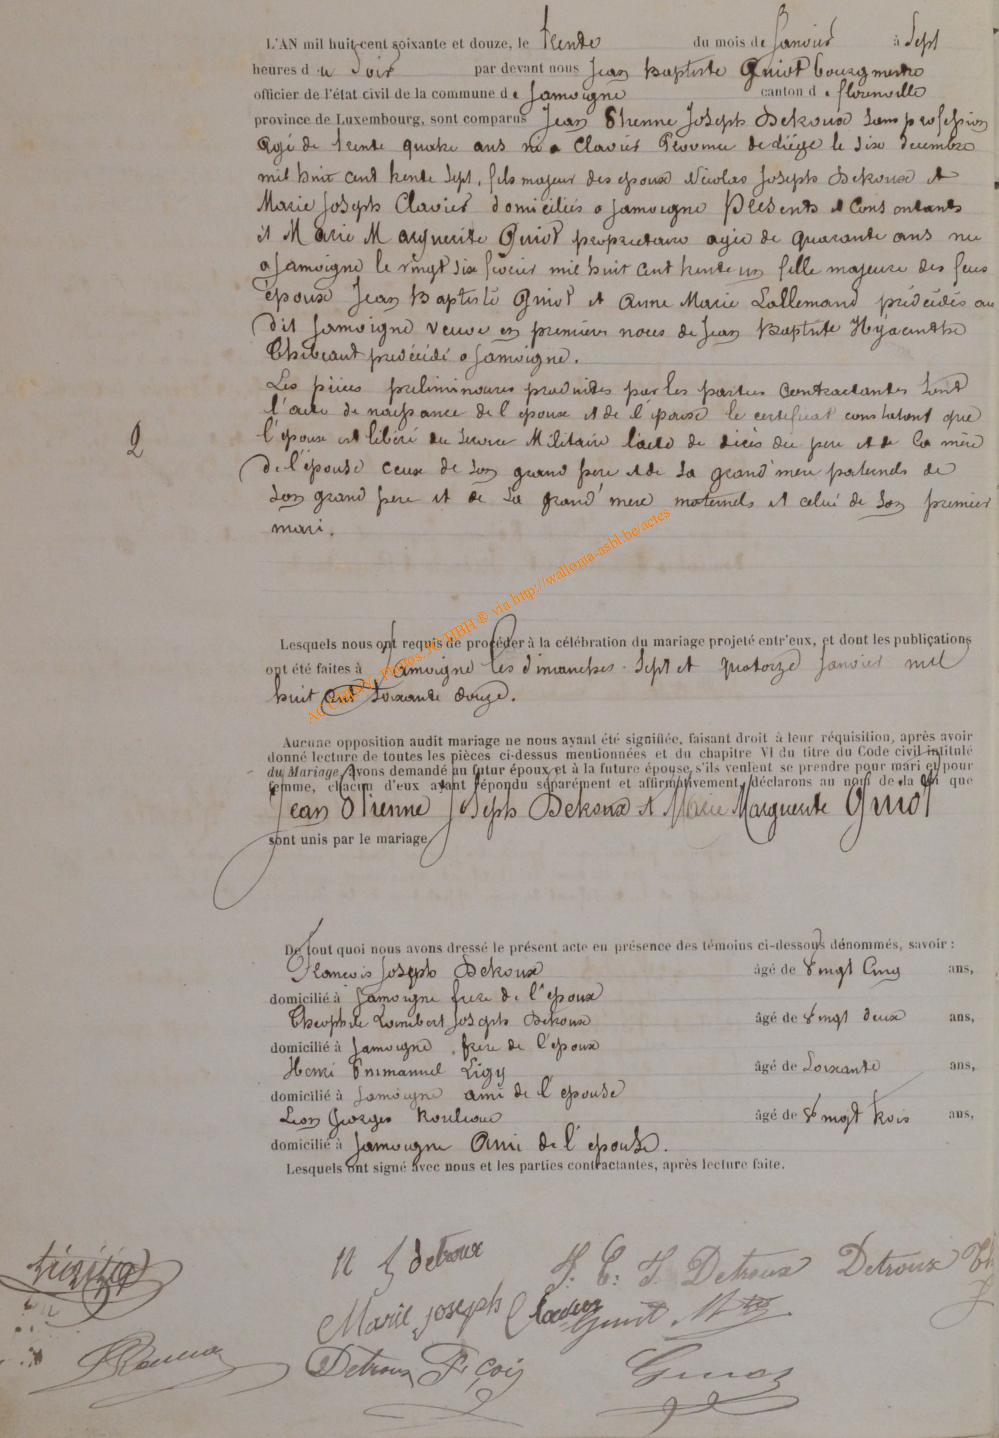 L'AN mil huit cent soixante et douze, le trente du mois de Janvier à Sept
heures d u Soir par devant nous Jean Baptiste Guiot bourgmestre
officier de l'état civil de la commune de Jamoigne canton de florenville
province de Luxembourg, sont comparus Jean Etienne Joseph Detroux Sans profession
agé de trente quatre ans né a Clavier Province de Liége le six decembre
mil huit cent trente sept, fils majeur des epoux Nicolas Joseph Detroux et
Marie Joseph Clavier domiciliés a Jamoigne Présents et Consentants
et Marie Marguerite Guiot proprietaire agée de quarante ans née
a Jamoigne le vingt six fevrier mil huit cent trente un fille majeure des feus
époux Jean Baptiste Guiot et Anne Marie Lallemand prédécédés au
dit Jamoigne veuve en premiers noces de Jean Baptiste Hyacinthe
predécédé a Jamoigne.
Les pièces preliminaires produites par les parties contractantes sont
l'acte de naissance de l'epoux et de l'épouse le certificat constatant que
l'epoux est libéré du Service Militaire l'acte de décès du pere et de la mère
de l'épouse ceux de son grand pere et de sa grand'mere paternels de
son grand pere et de sa grand'mere maternels et celui de son premier
mari.
2
Lesquels nous ont requis de procéder à la célébration du mariage projeté entr'eux, et dont les publications
ont été faites à Jamoigne les dimanches Sept et quatorze Janvier mil
huit cent soixante douze.
AC Chiny, Photos JC HBH ® via http://wallonia-asbl.be/actes
Aucune opposition audit mariage ne nous ayant été signifiée, faisant droit à leur réquisition, après avoir
donné lecture de toutes les pièces ci-dessus mentionnées et du chapitre VI du titre du Code civil intitulé
du Mariage, avons demandé au futur époux et à la future épouse s'ils veulent se prendre pour mari et pour
femme, chacun d'eux ayant répondu séparément et affirmativement, déclarons au nom de la loi que
Jean Etienne Joseph Detroux et Marie Marguerite Guiot
sont unis par le mariage
De tout quoi nous avons dressé le présent acte en présence des témoins ci-dessous dénommés, savoir :
Francois Joseph Detroux âgé de vingt Cinq ans,
domicilié à Jamoigne frere de l'epoux
Theophile Lambert Joseph Detroux âgé de vingt deux ans,
domicilié à Jamoigne, frere de l'epoux
Henri Emmanuel Ligy âgé de Soixante ans,
domicilié à Jamoigne ami de l'epouse
Leon Georges âgé de vingt trois ans,
domicilié à Jamoigne Ami de l'epouse.
Lesquels ont signé avec nous et les parties contractantes, après lecture faite.
N J detroux
J. E. J. Detroux Detroux Th
J
Marie joseph Clavier
Guiot
Detroux Fçois
Guiot